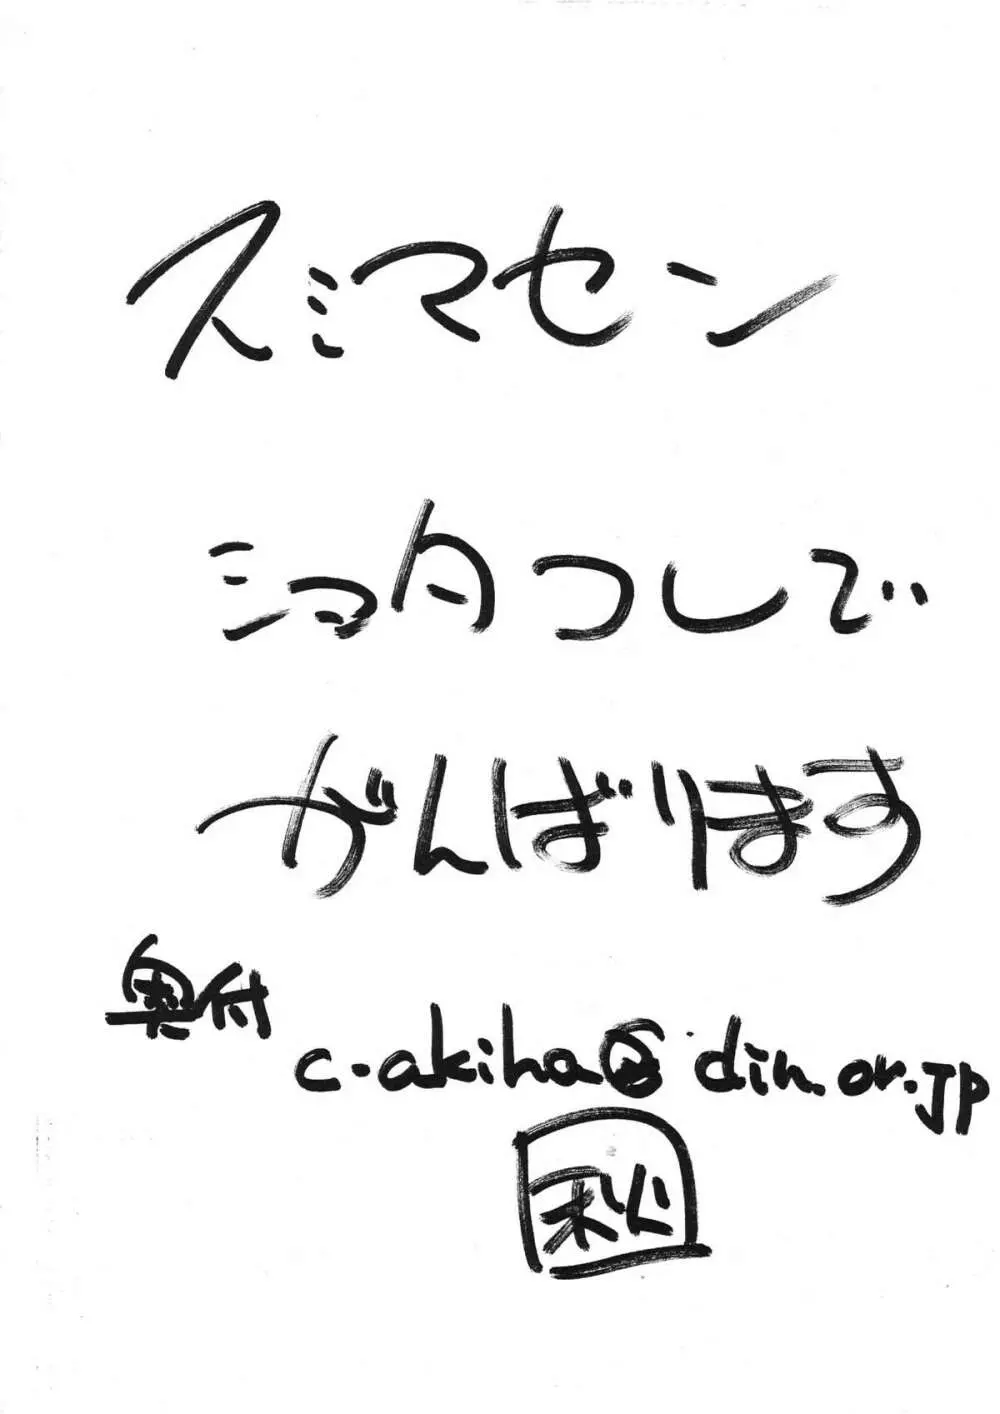 スミマセン
ショタコレで
がんばります
奥付
c-akiha@din.or.jp
秋